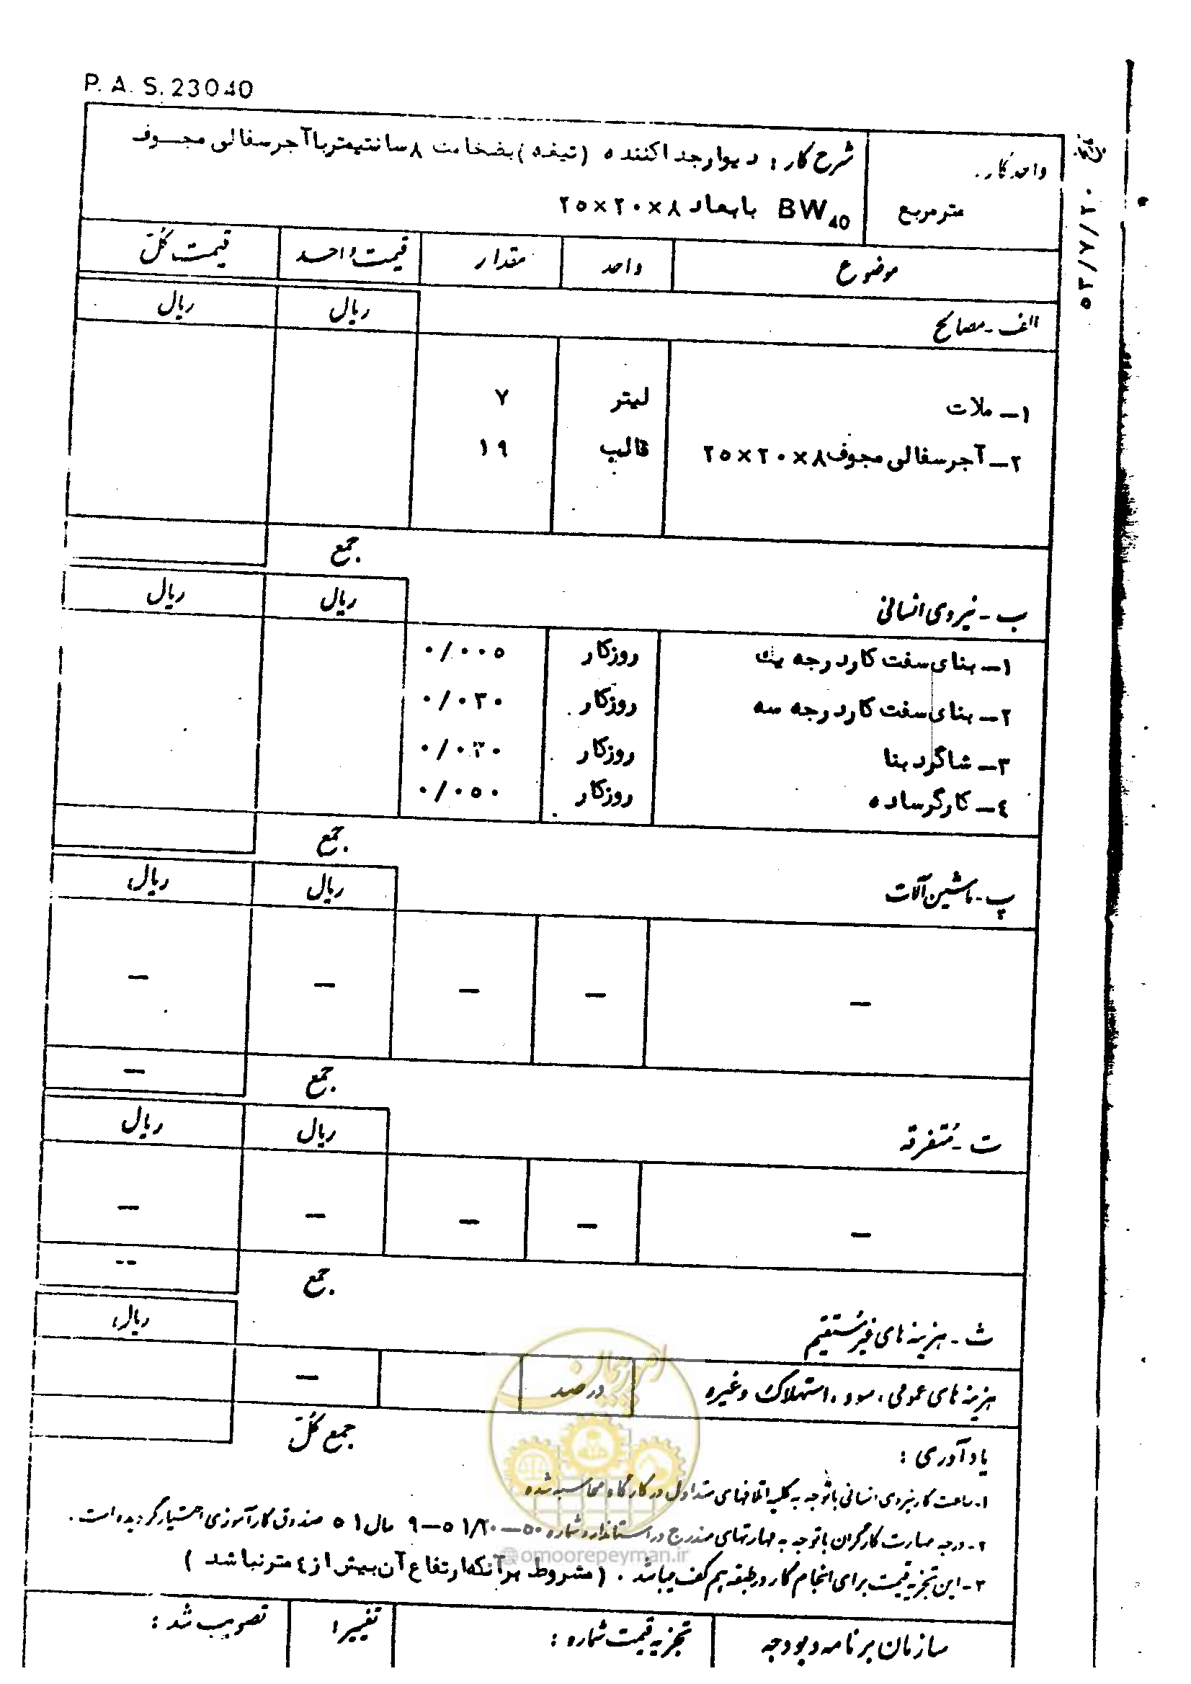 P. A. S. 23040
تاریخ ۵۳/۷/۲۰
واحد کار.
مترمربع
شرح کار : دیوارجداکننده (تیغه) بضخامت ۸ سانتیمتر با آجرسفالی مجوف
BW40 بابعاد ۸×۲۰×۲۵
موضوع واحد مقدار قیمت واحد قیمت کُل
الف - مصالح ریال ریال
۱ – ملات لیتر ۷
۲ – آجرسفالی مجوف ۸×۲۰×۲۵ قالب ۱۹
جمع
ب - نیروی انسانی ریال ریال
۱ – بنای سفت کاردرجه یک روزکار ۰/۰۰۵
۲ – بنای سفت کاردرجه سه روزکار ۰/۰۳۰
۳ – شاگرد بنا روزکار
۴ – کارگرساده روزکار ۰/۰۵۰
جمع
پ - ماشین آلات ریال ریال
– – – – –
جمع –
ت - مُتفرقه ریال ریال
– – – – –
جمع --
ث - هزینه های غیرمُستقیم ریال
هزینه های عمومی ، سود ، استهلاک وغیره درصد –
جمع کُل
امور پیمان
یادآوری :
۱ - ساعت کار نیروی انسانی باتوجه به کلیه اتلافهای متداول در کارگاه محاسبه شده
۲ - درجه مهارت کارگران باتوجه به مهارتهای مندرج در استاندارد شماره ۵۰–۵۱/۲۰–۹ سال ۵۱ صندوق کارآموزی اختیار گردیده است .
@omoorepeyman.ir
۳ - این تجزیه قیمت برای انجام کار در طبقه هم کف میباشد . (مشروط برآنکه ارتفاع آن بیش از ۴ متر نباشد )
سازمان برنامه و بودجه تجزیه قیمت شماره : تغییر : تصویب شد :